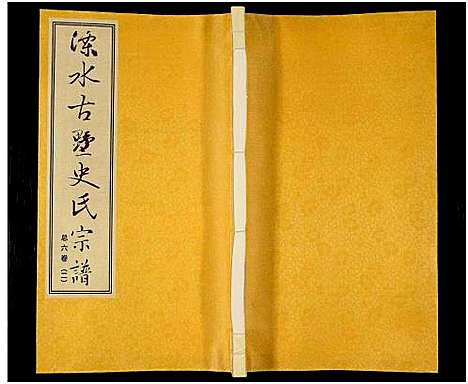 溧水古墅史氏宗譜
总六卷(二)